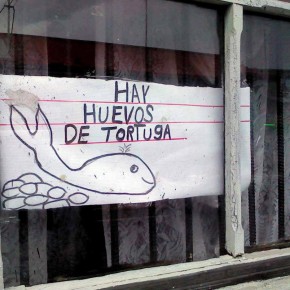 HAY
HUEVOS
DE TORTUGA